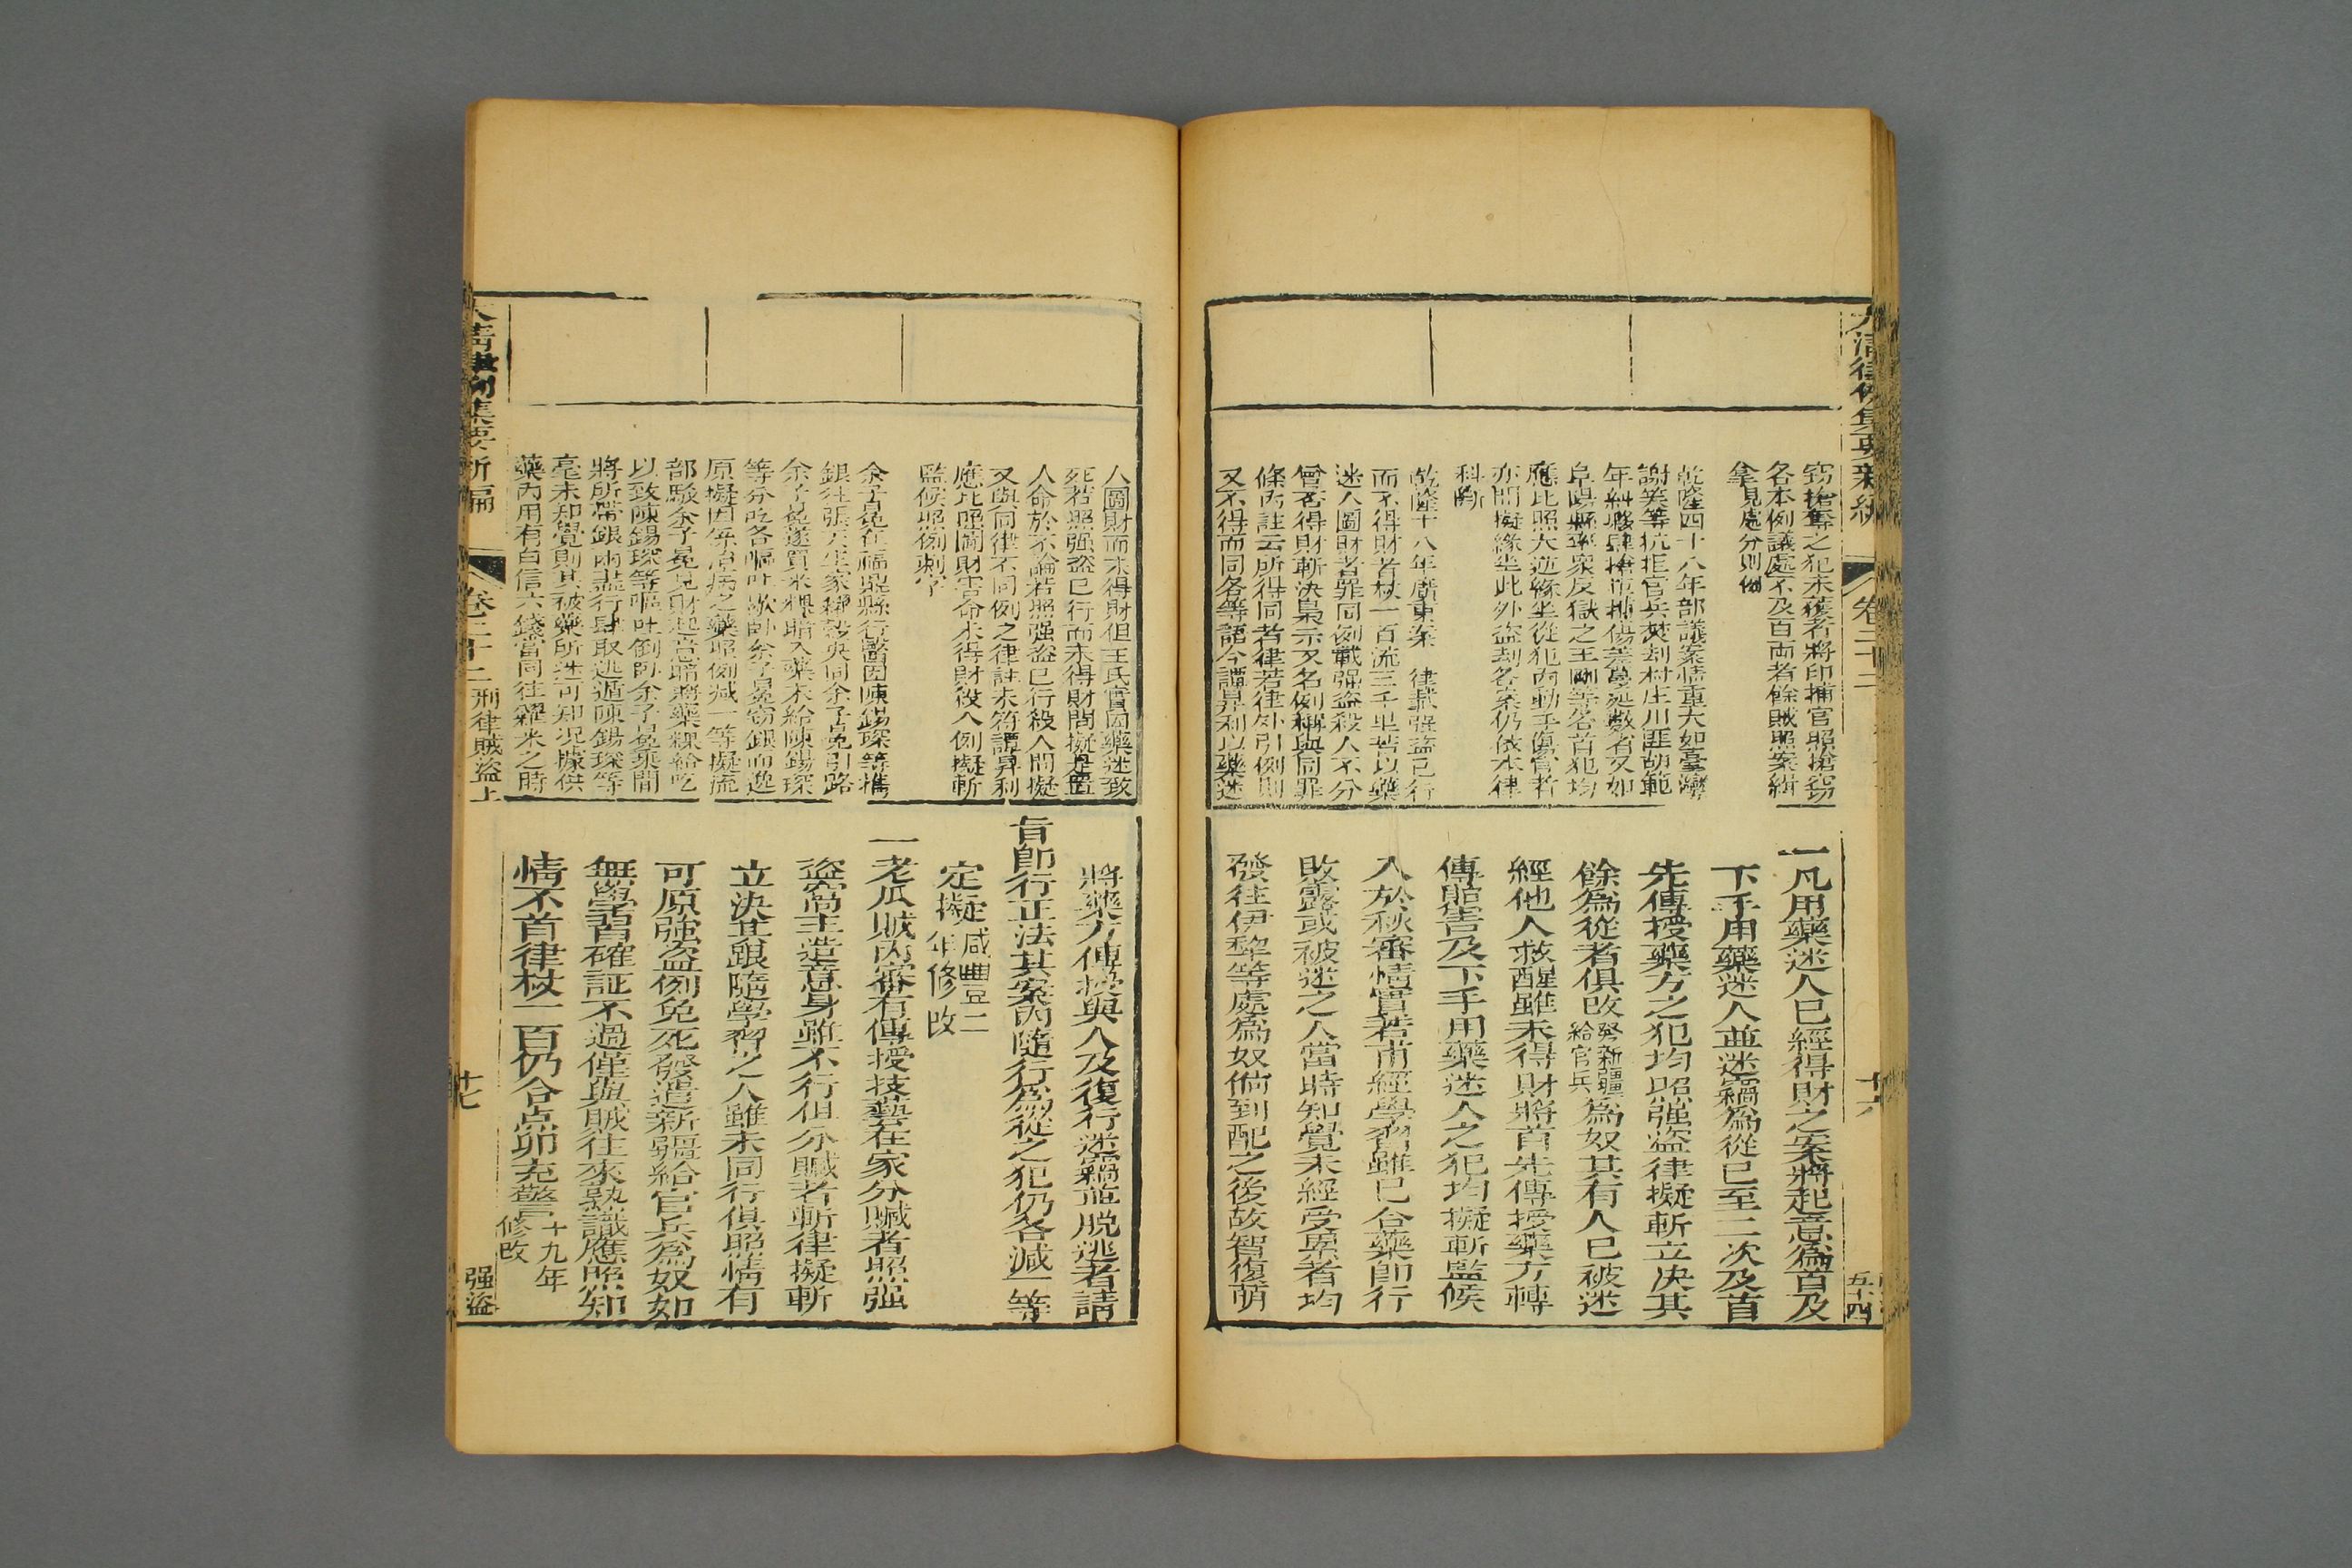 大清律例集要新編
卷二十二
十六
五十四
竊搶奪之犯未獲者將印捕官照搶竊
各本例議處不及百両者餘賊照案緝
拿見處分則例
乾隆四十八年部議案情重大如臺灣
謝笑等抗拒官兵焚刼村庄川匪胡範
年糾夥肆搶市捕傷差蔓延數省又如
阜陽縣率衆反獄之王剛等各首犯均
應比照大逆緣坐從犯內動手傷官者
亦問擬緣坐此外盗刧名案仍依本律
科斷
乾隆十八年廣東案 律載强盗已行
而不得財者杖一百流三千里若以藥
迷人圖財者罪同例載强盗殺人不分
曾否得財斬決梟示又名例稱與同罪
條內註云所得同者律若律外引例則
又不得而同各等語今譚昇利以藥迷
一凡用藥迷人已經得財之案將起意爲首及
下手用藥迷人並迷竊爲從已至二次及首
先傳授藥方之犯均照强盗律擬斬立決其
餘爲從者俱改發新疆給官兵爲奴其有人已被迷
經他人救醒雖未得財將首先傳授藥方轉
傳貽害及下手用藥迷人之犯均擬斬監候
入於秋審情實若甫經學習雖已合藥即行
敗露或被迷之人當時知覺未經受累者均
發往伊犂等處爲奴倘到配之後故智復萌
人圖財而未得財但王氏實因藥迷致
死若照强盗已行而未得財問擬是置
人命於不論若照强盗已行殺人問擬
又與同律不同例之律註未符譚昇利
應比照圖財害命未得財殺人例擬斬
監候照例刺字
余子冕在福鼎縣行醫因陳錫琛等攜
銀往張大生家糴穀央同余子冕引路
余子冕遂買米粿暗入藥末給陳錫琛
等分吃各嘔吐歇卧余子冕竊銀而逸
原擬因係治病之藥照例減一等擬流
部駁余子冕見財起意暗將藥粿給吃
以致陳錫琛等嘔吐倒卧余子冕乘間
將所帶銀兩盡行肆取逃遁陳錫琛等
毫未知覺則其被藥所迷可知况據供
藥內用有白信六錢當同往糴米之時
將藥方傳授與人及復行迷竊並脱逃者請
旨即行正法其案內隨行爲從之犯仍各減一等
定擬咸豐二年修改
一老瓜賊內審有傳授技藝在家分贓者照强
盗窩主造意身雖不行但分贓者斬律擬斬
立決其跟隨學習之人雖未同行俱照情有
可原强盗例免死發遣新疆給官兵爲奴如
無學習確証不過僅與賊往來熟識應照知
情不首律杖一百仍令点卯充警十九年修改
大清律例集要新編
卷二十二 刑律賊盗上
十七
强盗